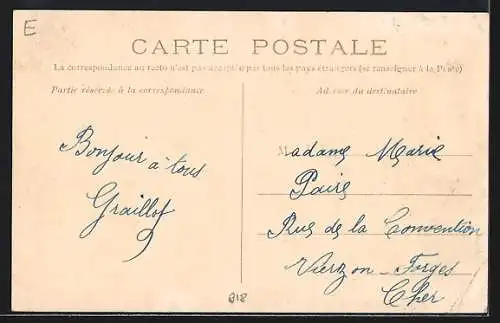 E
CARTE POSTALE
La correspondance au recto n'est pas acceptée par tous les pays étrangers (se renseigner à la Poste)
Partie réservée à la correspondance
Adresse du destinataire
Bonjour à tous
Graillot
Madame Marie
Paire
Rue de la Convention
Vierzon Forges
Cher
B18